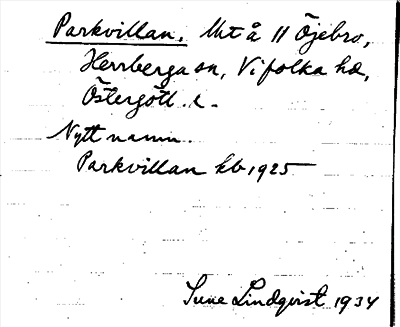 Parkvillan. Utt å 11 Öjebro,
Herrberga sn, Vifolka hd,
Östergötl. l.
Nytt namn.
Parkvillan kb 1925
Sune Lindqvist 1934